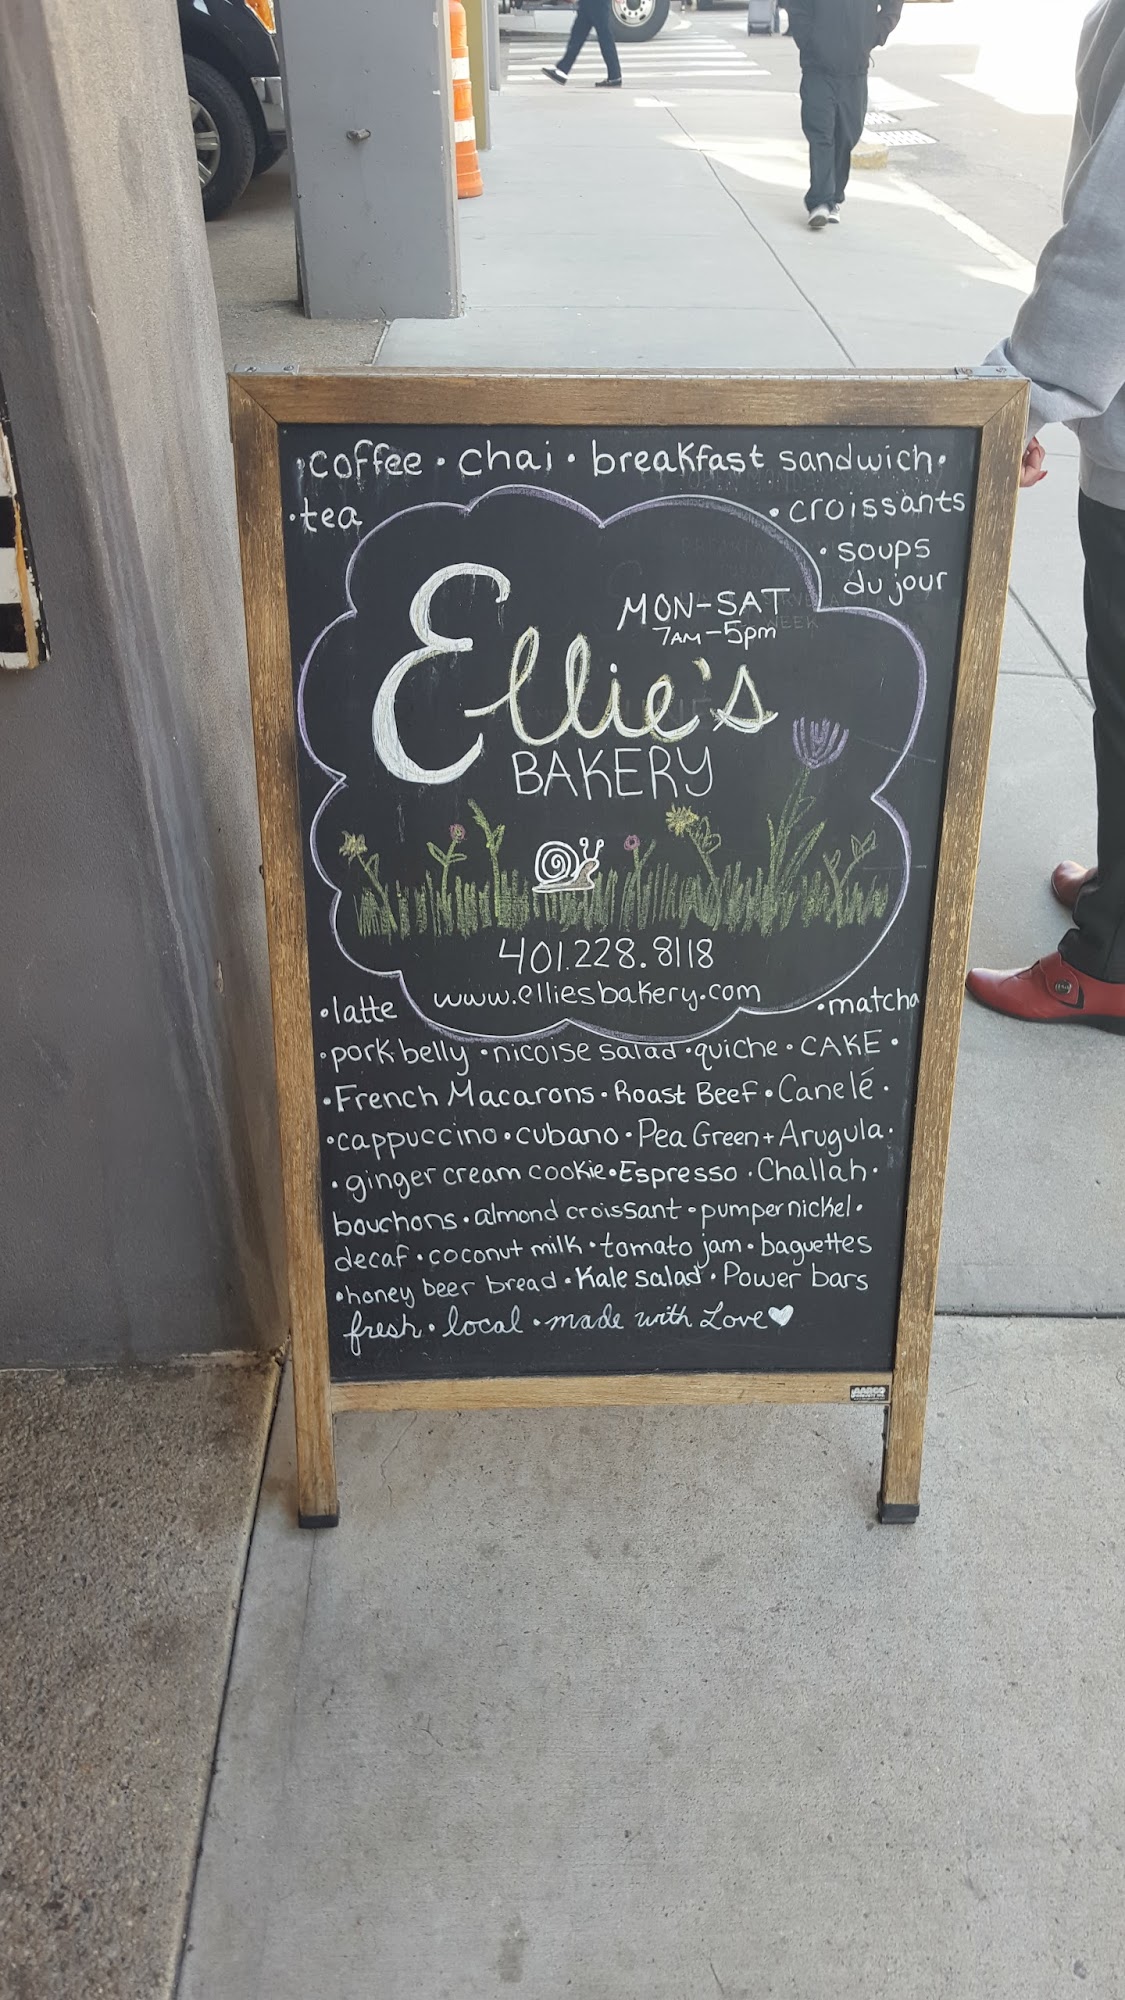 ·coffee · chai · breakfast sandwich·
·tea
· croissants
· soups
du jour
MON-SAT
7AM-5pm
Ellie's
BAKERY
401.228.8118
www.elliesbakery.com
·latte
·matcha
·pork belly ·nicoise salad ·quiche · CAKE ·
·French Macarons · Roast Beef · Canelé ·
·cappuccino · cubano · Pea Green + Arugula ·
· ginger cream cookie · Espresso · Challah ·
bouchons · almond croissant · pumpernickel ·
decaf · coconut milk · tomato jam · baguettes
·honey beer bread · Kale salad · Power bars
fresh · local · made with Love♥
AARCO